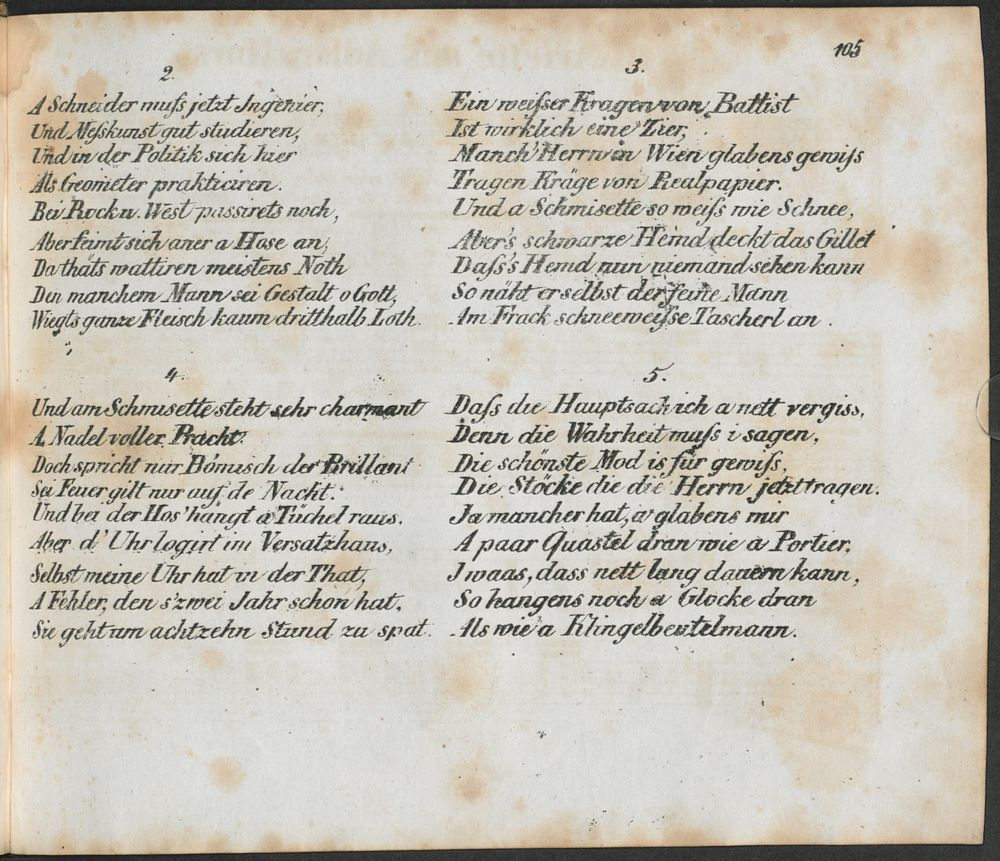 105
2.
A Schneider muſs jetzt Ingenier,
Und Meſskunst gut studieren,
Und in der Politik sich hier
Als Geometer prakticiren.
Bei Rock u. West passirets noch,
Aber faimt sich aner a Hose an,
Da thäts wattiren meistens Noth
Den manchem Mann sei Gestalt o Gott,
Wiegts ganze Fleisch kaum dritthalb Loth.
3.
Ein weiſser Kragen von Battist
Ist wirklich eine Zier,
Manch' Herrn in Wien glabens gewiſs
Tragen Kräge von Realpapier.
Und a Schmisette so weiſs wie Schnee,
Aber's schwarze Hemd deckt das Gillet
Daſs's Hemd nun niemand sehen kann
So näht er selbst der feine Mann
Am Frack schneeweiſse Tascherl an.
4.
Und am Schmisette steht sehr charmant
A Nadel voller Pracht.
Doch spricht nur Bömisch der Brillant
Sei Feuer gilt nur auf de Nacht.
Und bei der Hos' hängt a Tüchel raus,
Aber d' Uhr logirt im Versatzhaus,
Selbst meine Uhr hat in der That,
A Fehler, den s' zwei Jahr schon hat,
Sie geht um achtzehn Stund zu spat.
5.
Daſs die Hauptsach ich a nett vergiss,
Denn die Wahrheit muſs i sagen,
Die schönste Mod is für gewiſs,
Die Stöcke die die Herrn jetzt tragen.
Ja mancher hat, a glabens mir
A paar Quastel dran wie a Portier,
I waas, dass nett lang dauern kann,
So hangens noch a Glocke dran
Als wie a Klingelbeutelmann.